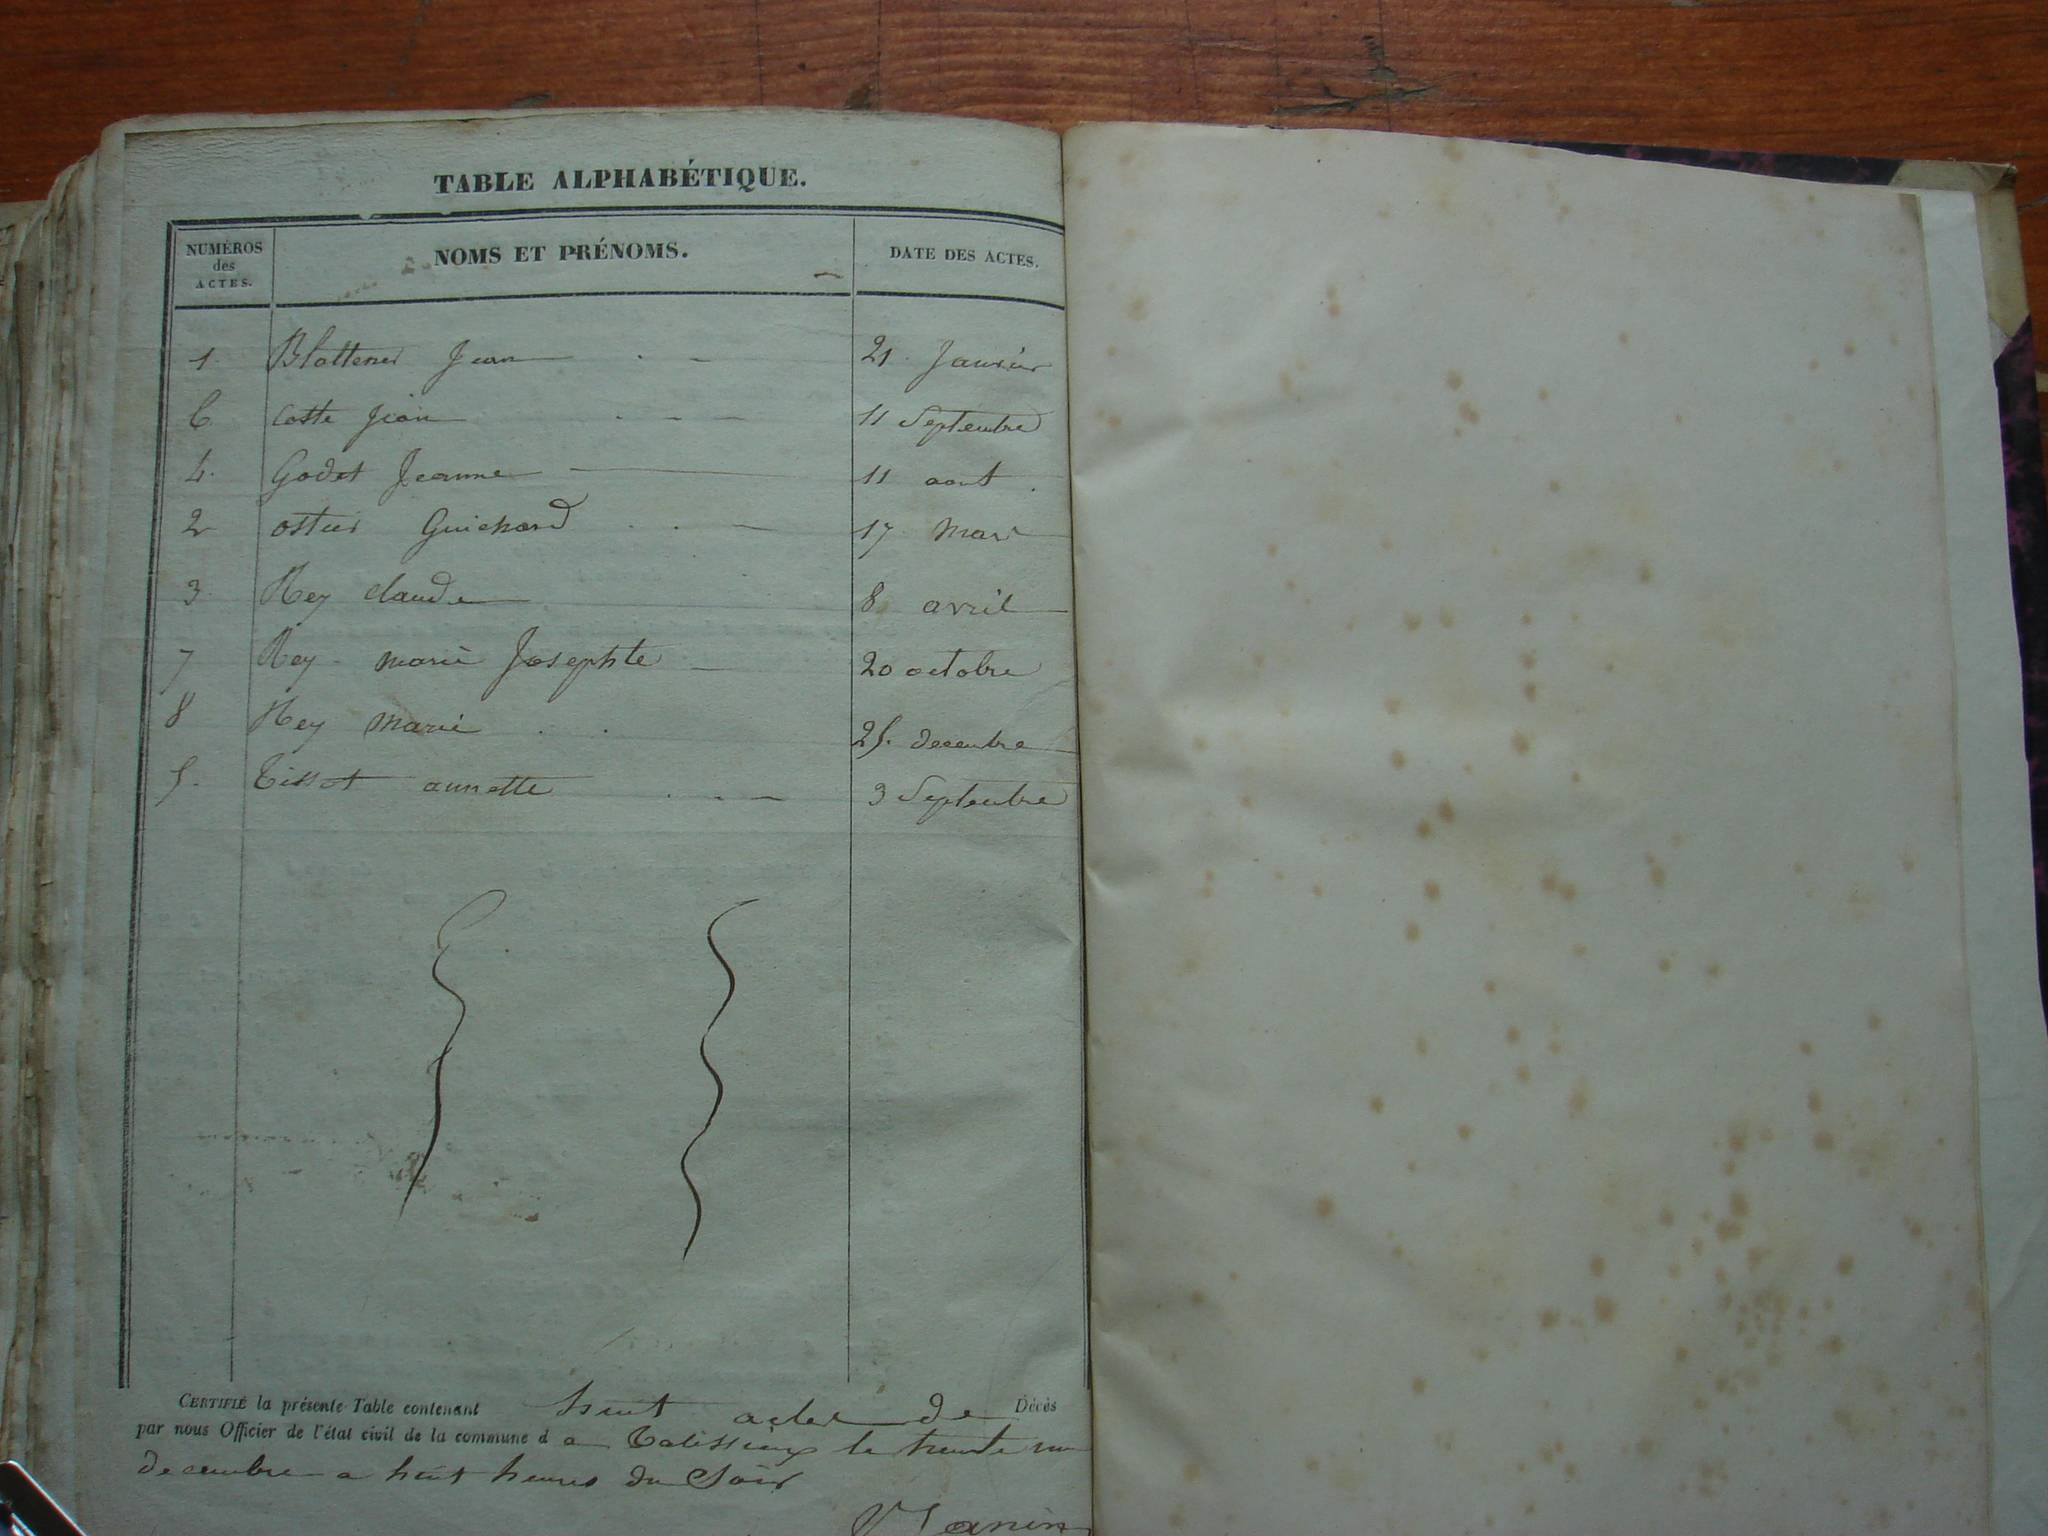 TABLE ALPHABÉTIQUE.
NUMÉROS des ACTES. NOMS ET PRÉNOMS. DATE DES ACTES.
1. Jean 21 Janvier
6 Coste Jean 11 Septembre
4. Godet Jeanne 11 aout
2 ostier Guichard 17 Mars
3 Rey claude 8 avril
7 Rey marie Josephte 20 octobre
8 Rey Marie 25. decembre
5. Tissot annette 3 Septembre
CERTIFIÉ la présente Table contenant huit actes de Décès
par nous Officier de l'état civil de la commune d a Talissieux le trente un
decembre a huit heures du Soir